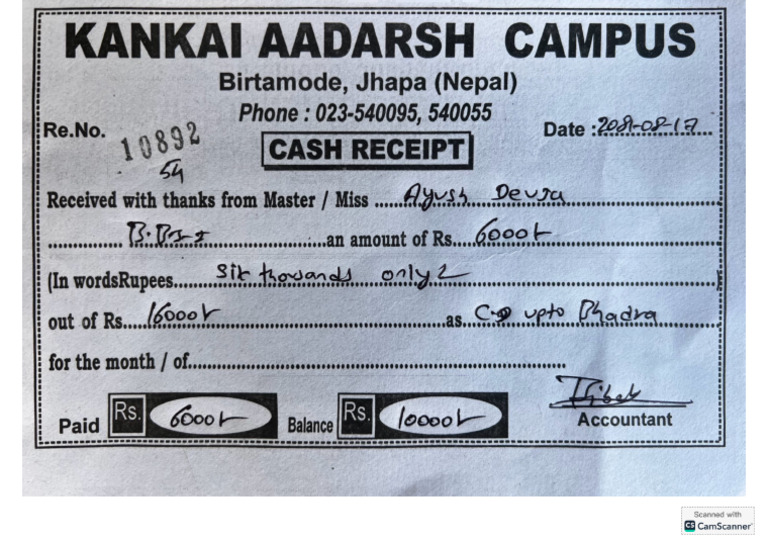 KANKAI AADARSH CAMPUS
Birtamode, Jhapa (Nepal)
Phone : 023-540095, 540055
Re.No. 10892
Date : 2081-08-17
54
CASH RECEIPT
Received with thanks from Master / Miss Ayush Deuja
an amount of Rs. 6000/-
(In wordsRupees Six thousands only )
out of Rs. 16000/- as upto Bhadra
for the month / of
Paid Rs. 6000/- Balance Rs. 10000/-
Accountant
Scanned with
CS CamScanner